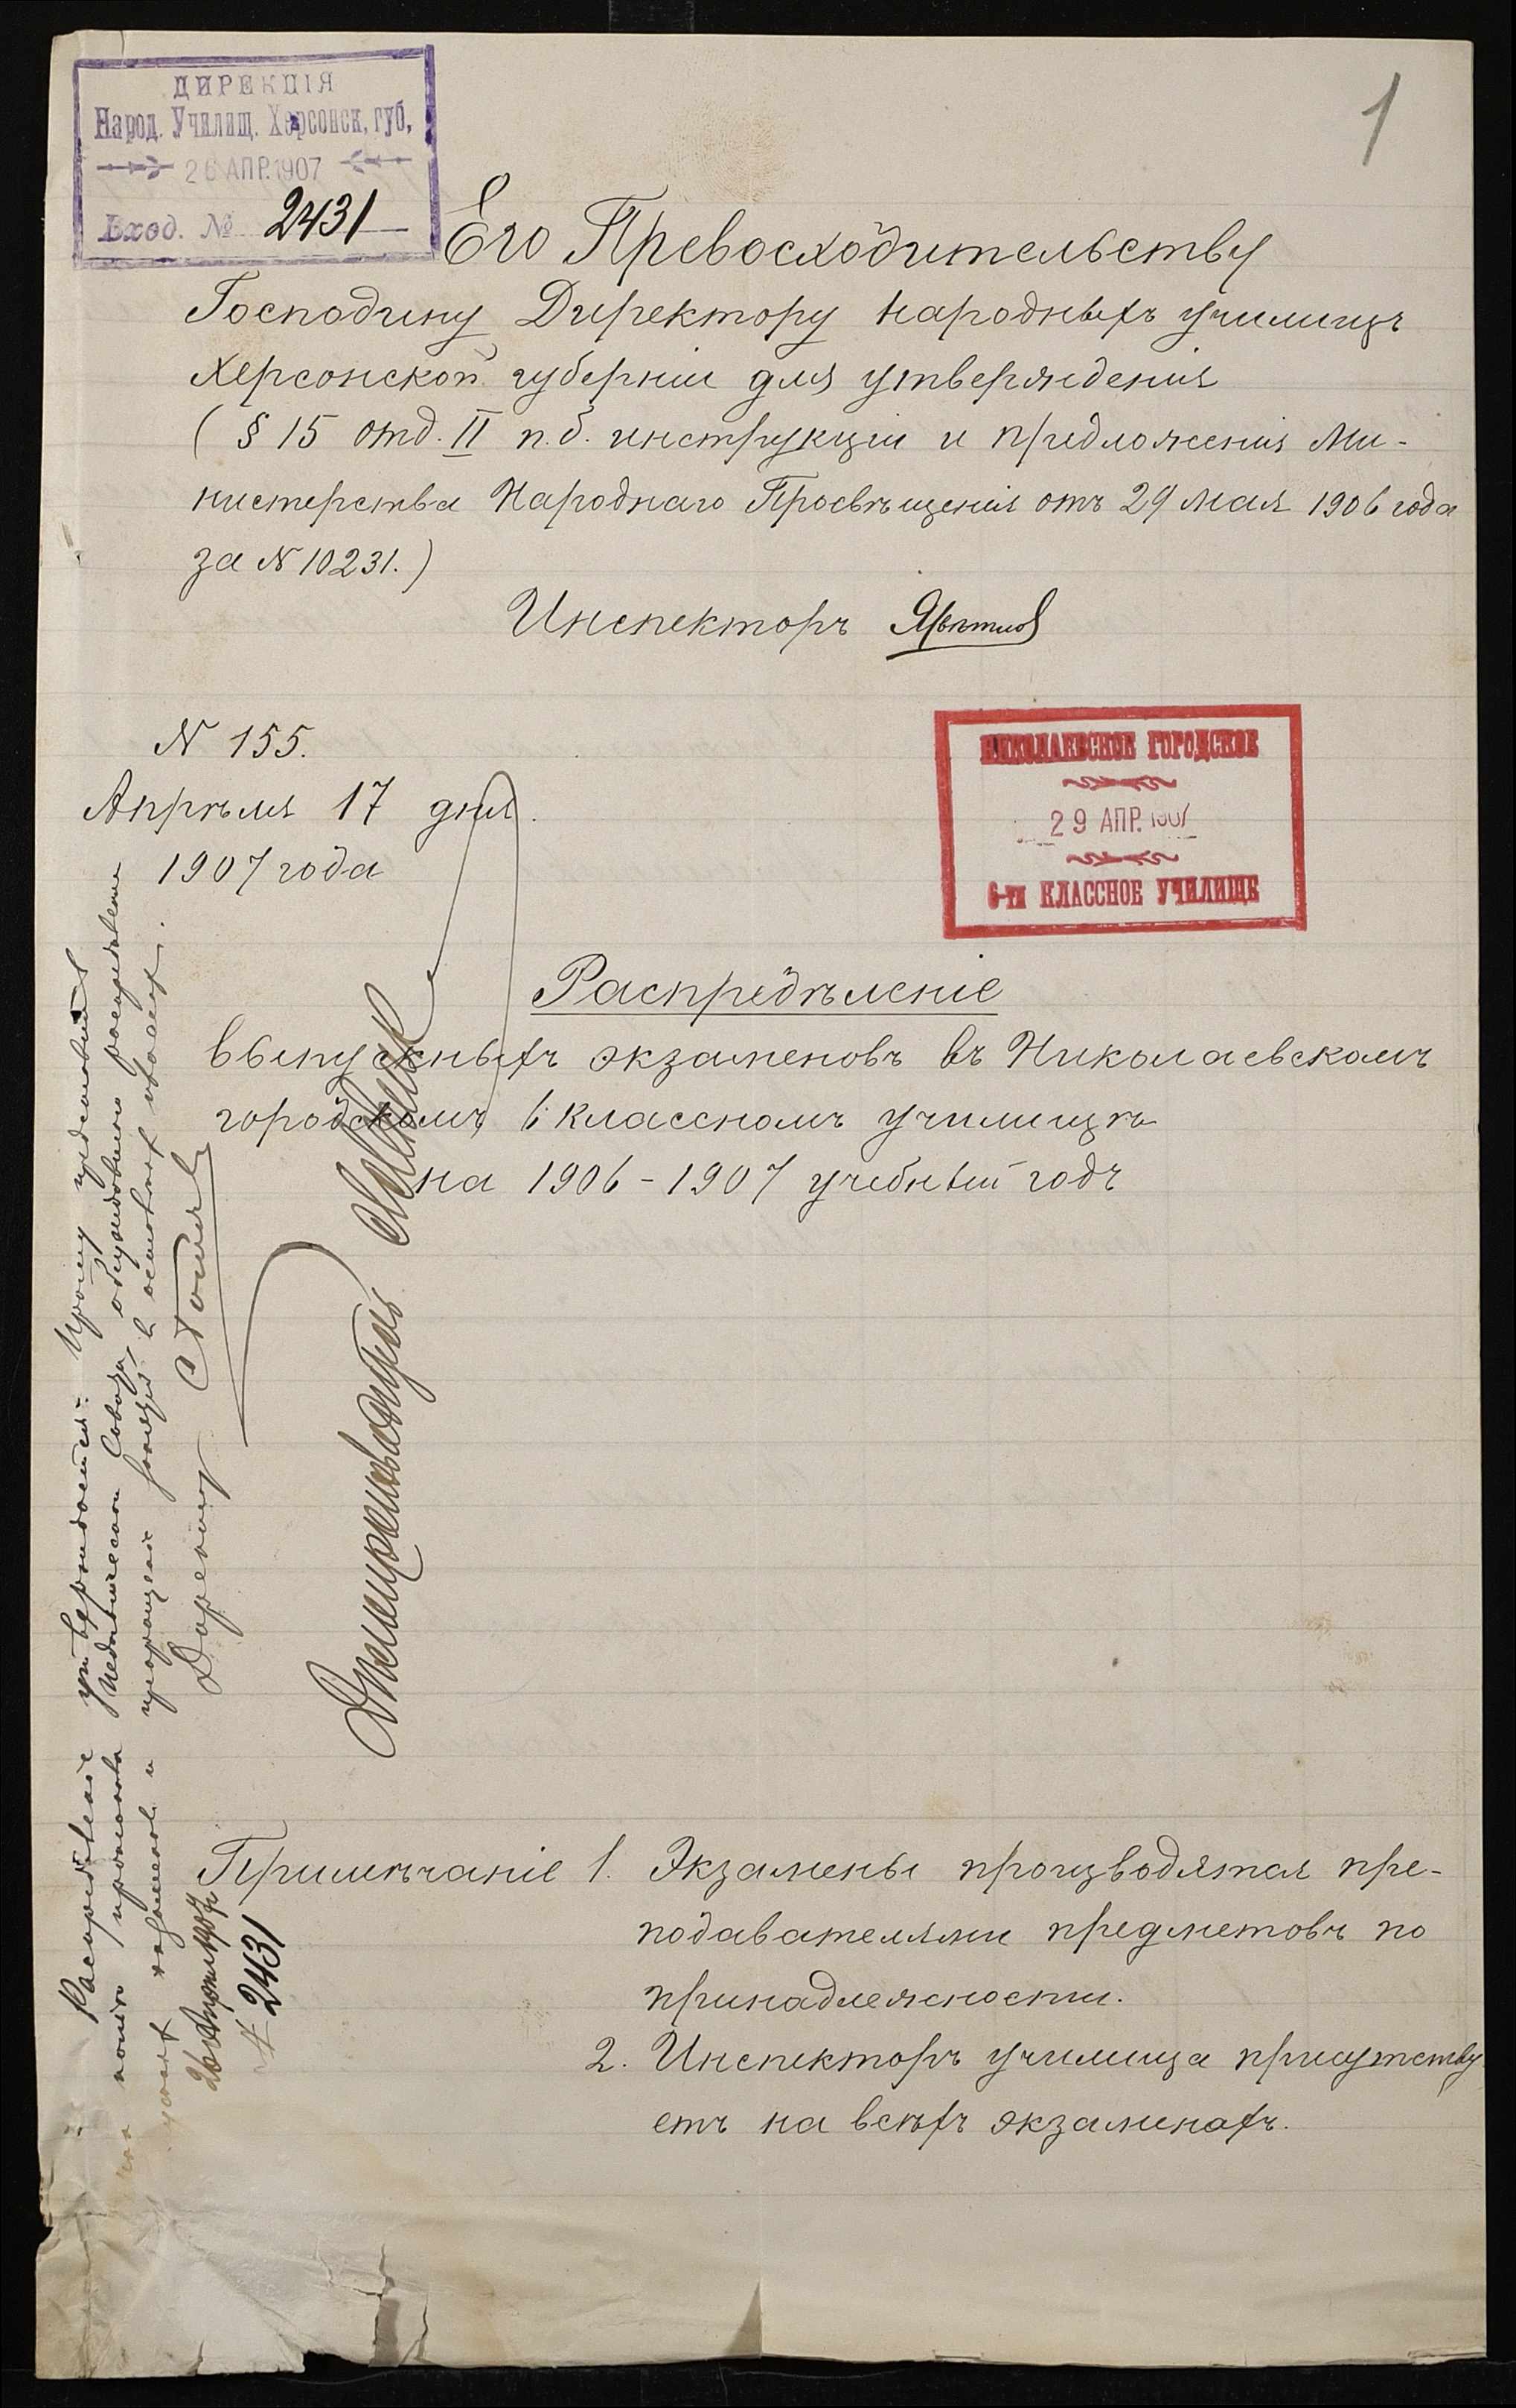 ДИРЕКЦІЯ
Народ. Училищ. Херсонск. губ.
26 АПР. 1907
Вход. № 2431
1
Его Превосходительству
Господину Директору народныхъ училищъ
Херсонской губерніи для утвержденія
( § 15 отд. II п. б. инструкціи и предложенія Ми-
нистерства Народнаго Просвѣщенія отъ 29 мая 1906 года
за N 10231.)
Инспекторъ
N 155.
Апрѣля 17 дня.
1907 года
НИКОЛАЕВСКОЕ ГОРОДСКОЕ
29 АПР. 1907
6-ти КЛАССНОЕ УЧИЛИЩЕ
Распредѣленіе
выпускныхъ экзаменовъ въ Николаевскомъ
городскомъ 6 классномъ училищѣ
на 1906-1907 учебный годъ
Распредѣленіе утверждается. Прошу представить
протокола Педагическаго Совѣта,
и
26 Апрѣля 1907 г.
N 2431
Примѣчаніе 1. Экзамены производятся пре-
подавателями предметовъ по
принадлежности.
2. Инспекторъ училища присутству
етъ на всѣхъ экзаменахъ.